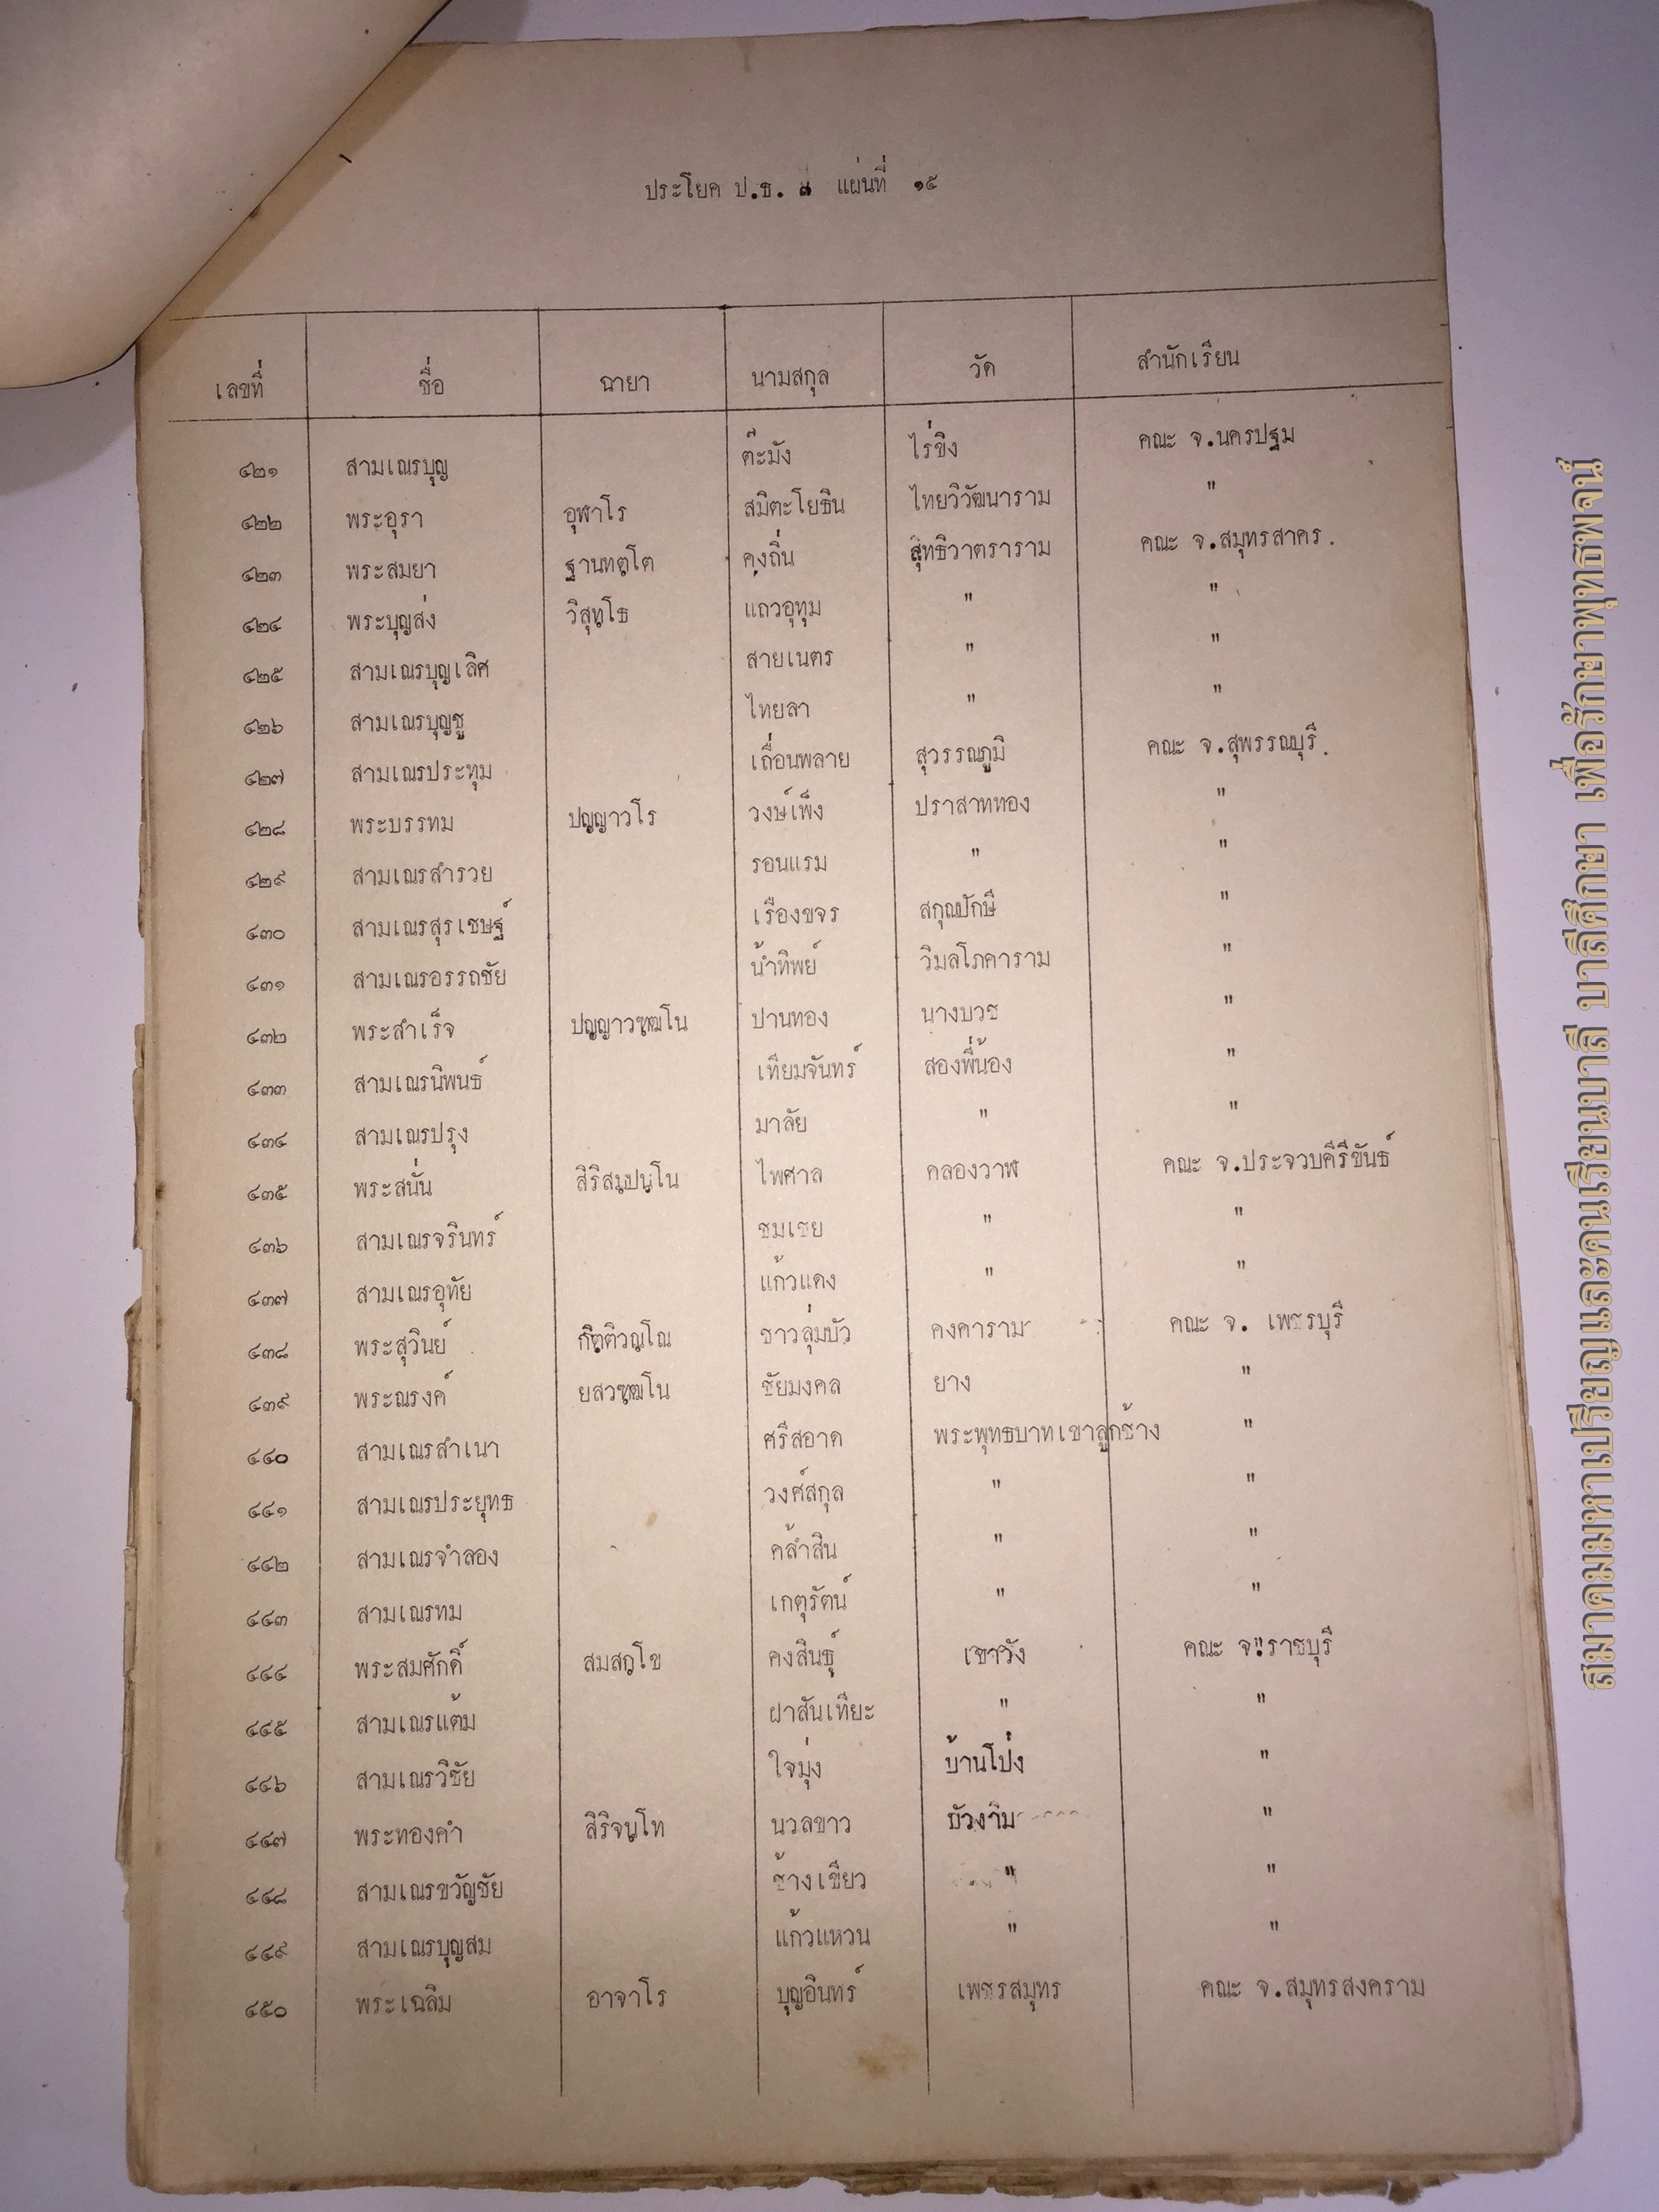 ประโยค ป.ธ. ๗ แผ่นที่ ๑๕
เลขที่ ชื่อ ฉายา นามสกุล วัด สำนักเรียน
๔๒๑ สามเณรบุญ ต๊ะมัง ไร่ขิง คณะ จ.นครปฐม
๔๒๒ พระอุรา อุฬาโร สมิตะโยธิน ไทยวิวัฒนาราม "
๔๒๓ พระสมยา ฐานทตฺโต คุงถิ่น สุทธิวาตราราม คณะ จ.สมุทรสาคร.
๔๒๔ พระบุญส่ง วิสุทฺโธ แถวอุทุม " "
๔๒๕ สามเณรบุญเลิศ สายเนตร " "
๔๒๖ สามเณรบุญชู ไทยลา " "
๔๒๗ สามเณรประทุม เถื่อนพลาย สุวรรณภูมิ คณะ จ.สุพรรณบุรี.
๔๒๘ พระบรรทม ปญฺญาวโร วงษ์เพ็ง ปราสาททอง "
๔๒๙ สามเณรสำรวย รอนแรม " "
๔๓๐ สามเณรสุรเชษฐ์ เรืองขจร สกุณปักษี "
๔๓๑ สามเณรอรรถชัย น้ำทิพย์ วิมลโภคาราม "
๔๓๒ พระสำเร็จ ปญฺญาวฑฺฒโน ปานทอง นางบวช "
๔๓๓ สามเณรนิพนธ์ เทียมจันทร์ สองพี่น้อง "
๔๓๔ สามเณรปรุง มาลัย " "
๔๓๕ พระสนั่น สิริสมฺปนฺโน ไพศาล คลองวาฬ คณะ จ.ประจวบคีรีขันธ์
๔๓๖ สามเณรจรินทร์ ชมเชย " "
๔๓๗ สามเณรอุทัย แก้วแดง " "
๔๓๘ พระสุวินย์ กิตฺติวณฺโณ ชาวลุ่มบัว คงคาราม คณะ จ. เพชรบุรี
๔๓๙ พระณรงค์ ยสวฑฺฒโน ชัยมงคล ยาง "
๔๔๐ สามเณรสำเนา ศรีสอาด พระพุทธบาทเขาลูกช้าง "
๔๔๑ สามเณรประยุทธ วงศ์สกุล " "
๔๔๒ สามเณรจำลอง คล้ำสิน " "
๔๔๓ สามเณรทม เกตุรัตน์ " "
๔๔๔ พระสมศักดิ์ สมสกฺโข คงสินธุ์ เขาวัง คณะ จ.ราชบุรี
๔๔๕ สามเณรแต้ม ฝาสันเทียะ " "
๔๔๖ สามเณรวิชัย ใจมุ่ง บ้านโป่ง "
๔๔๗ พระทองคำ สิริจนฺโท นวลขาว บัวงาม "
๔๔๘ สามเณรขวัญชัย ช้างเขียว " "
๔๔๙ สามเณรบุญสม แก้วแหวน " "
๔๕๐ พระเฉลิม อาจาโร บุญอินทร์ เพชรสมุทร คณะ จ.สมุทรสงคราม
สมาคมมหาเปรียญและคนเรียนบาลี บาลีศึกษา เพื่อรักษาพุทธพจน์